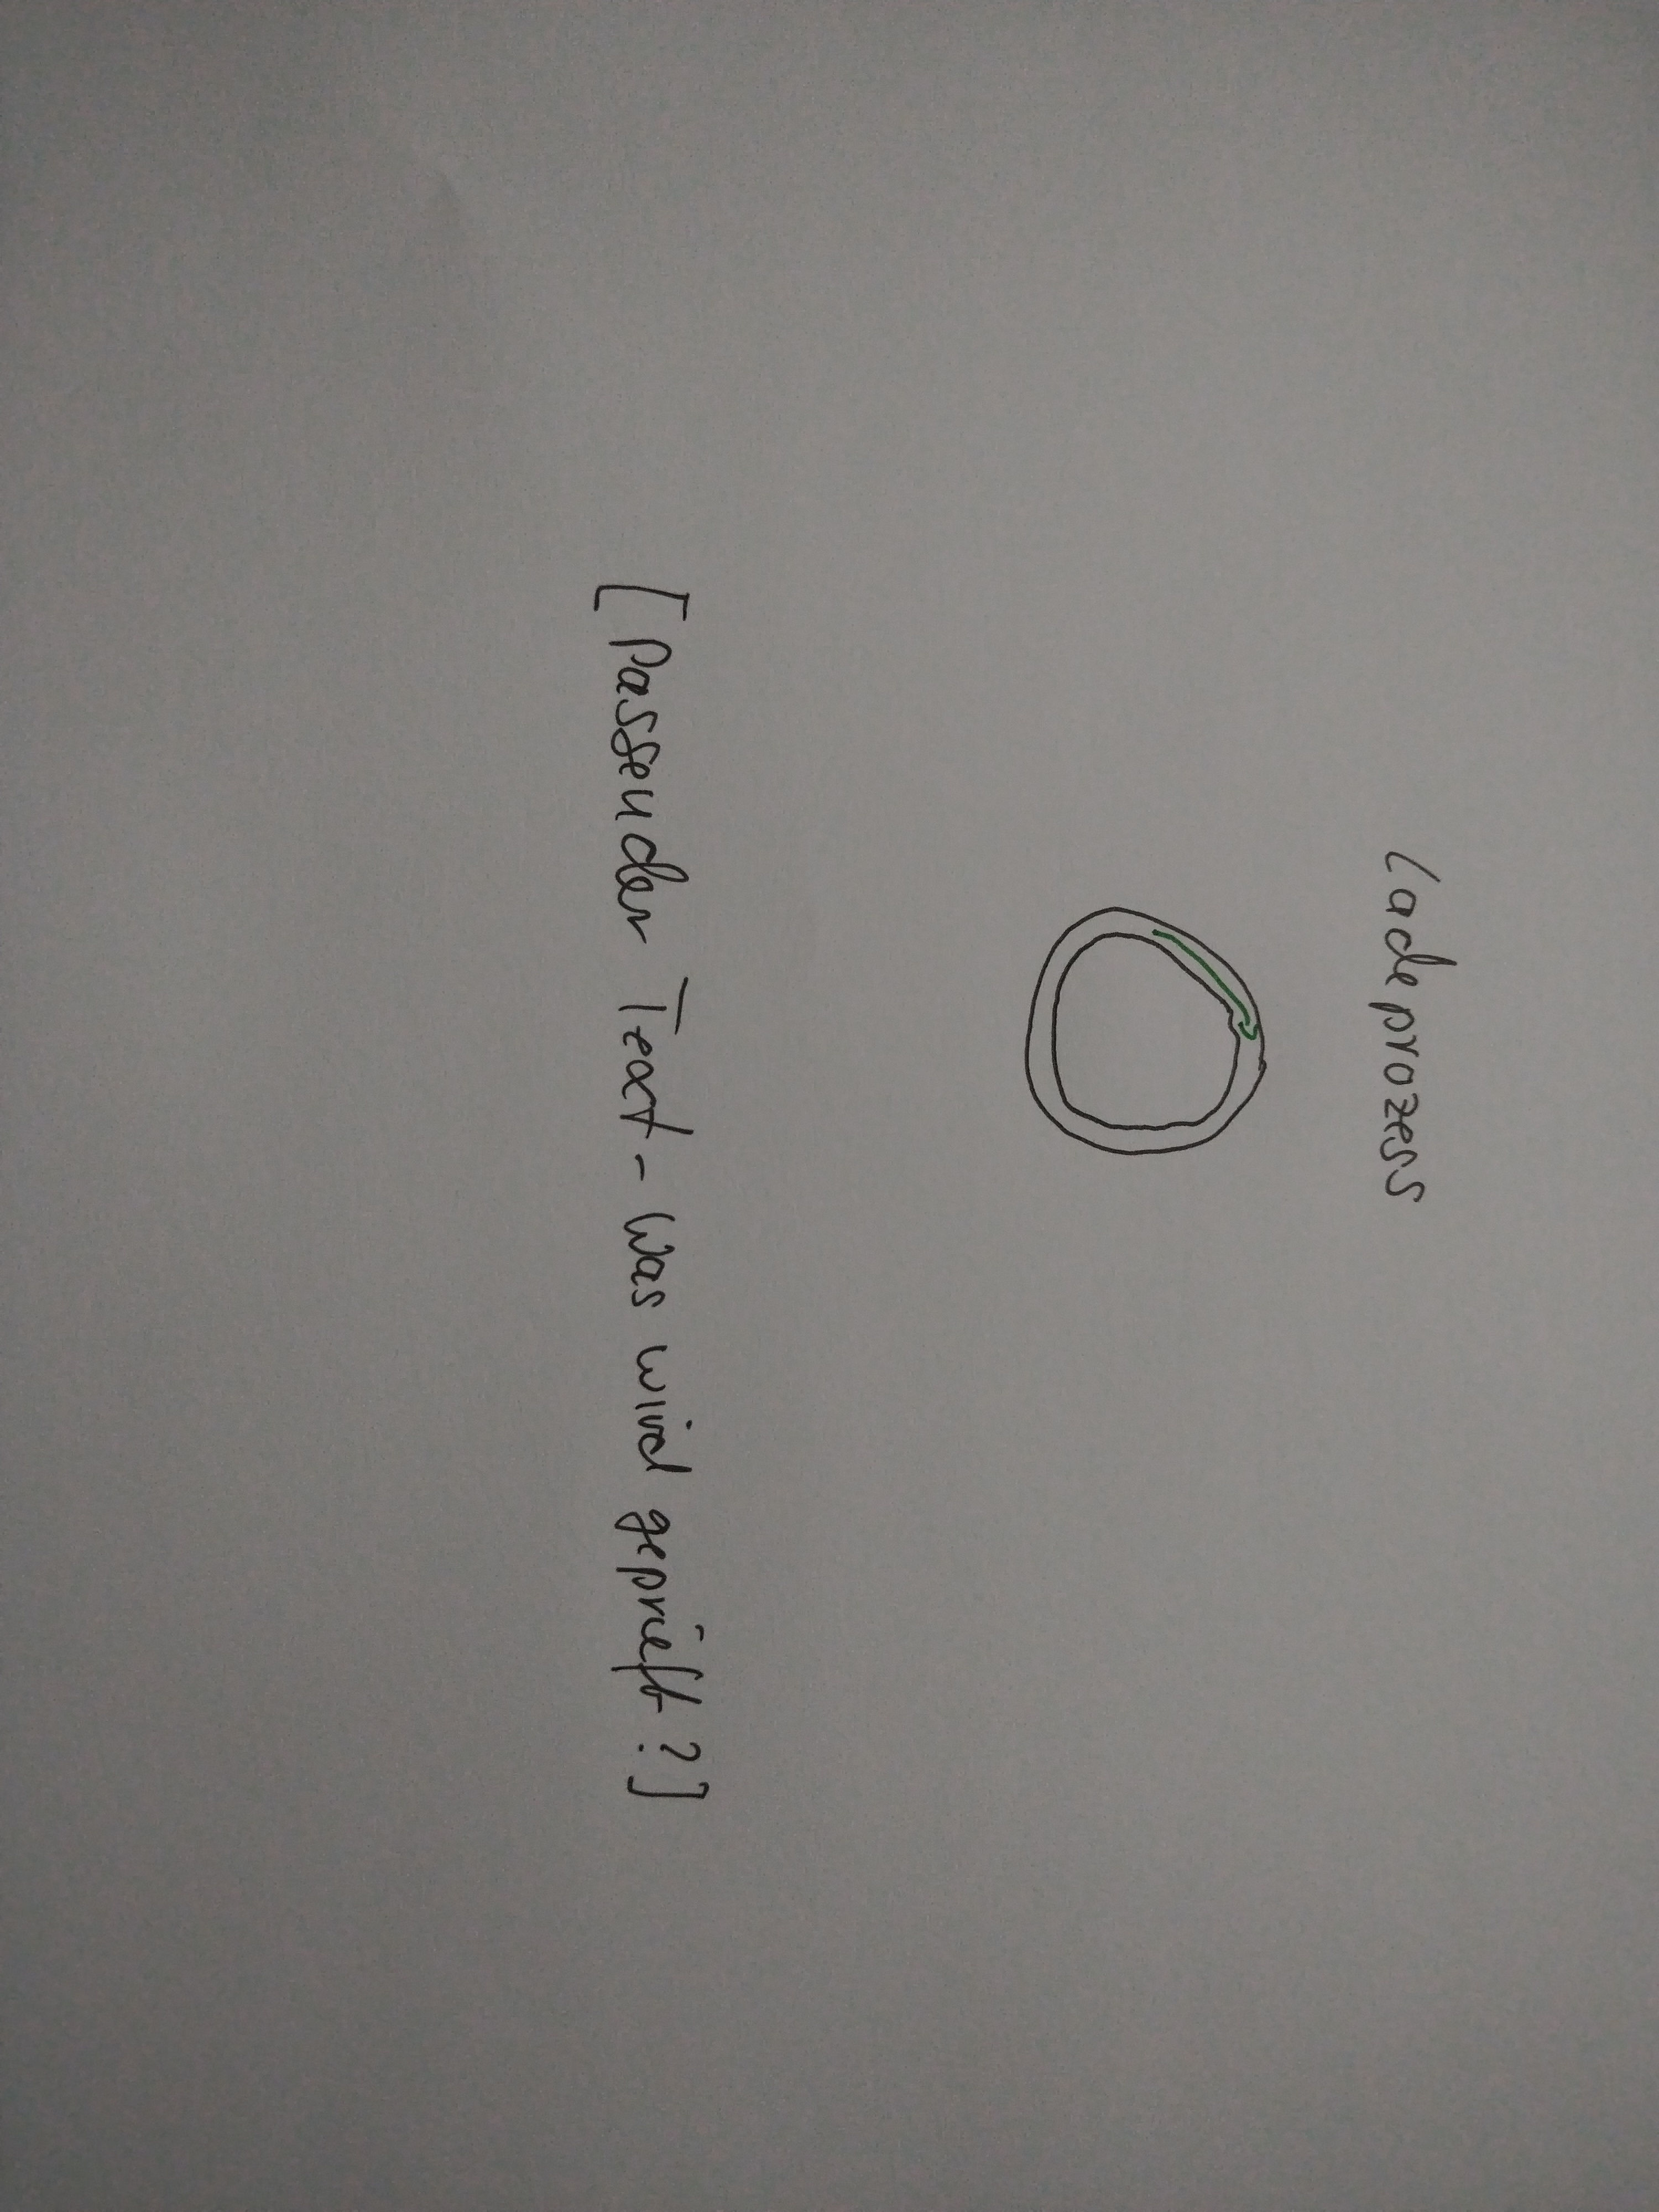 Ladeprozess
[Passender Text - Was wird geprüft?]